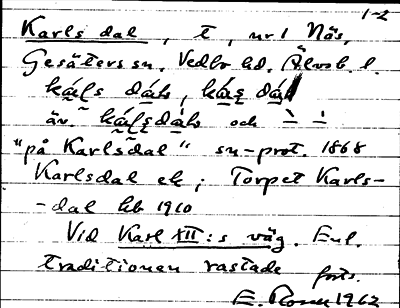 1-2
Karlsdal, t, ur 1 Näs,
Gesäters sn. Vedbo hd. Älvsb. l.
káls dáls, káʂ dál
äv. kálsdáls och ` `
"på Karlsdal" sn-prot. 1868
Karlsdal ek; Torpet Karls-
-dal hb 1910
Vid Karl XII:s väg. Enl.
traditionen rastade
forts.
E. 1962